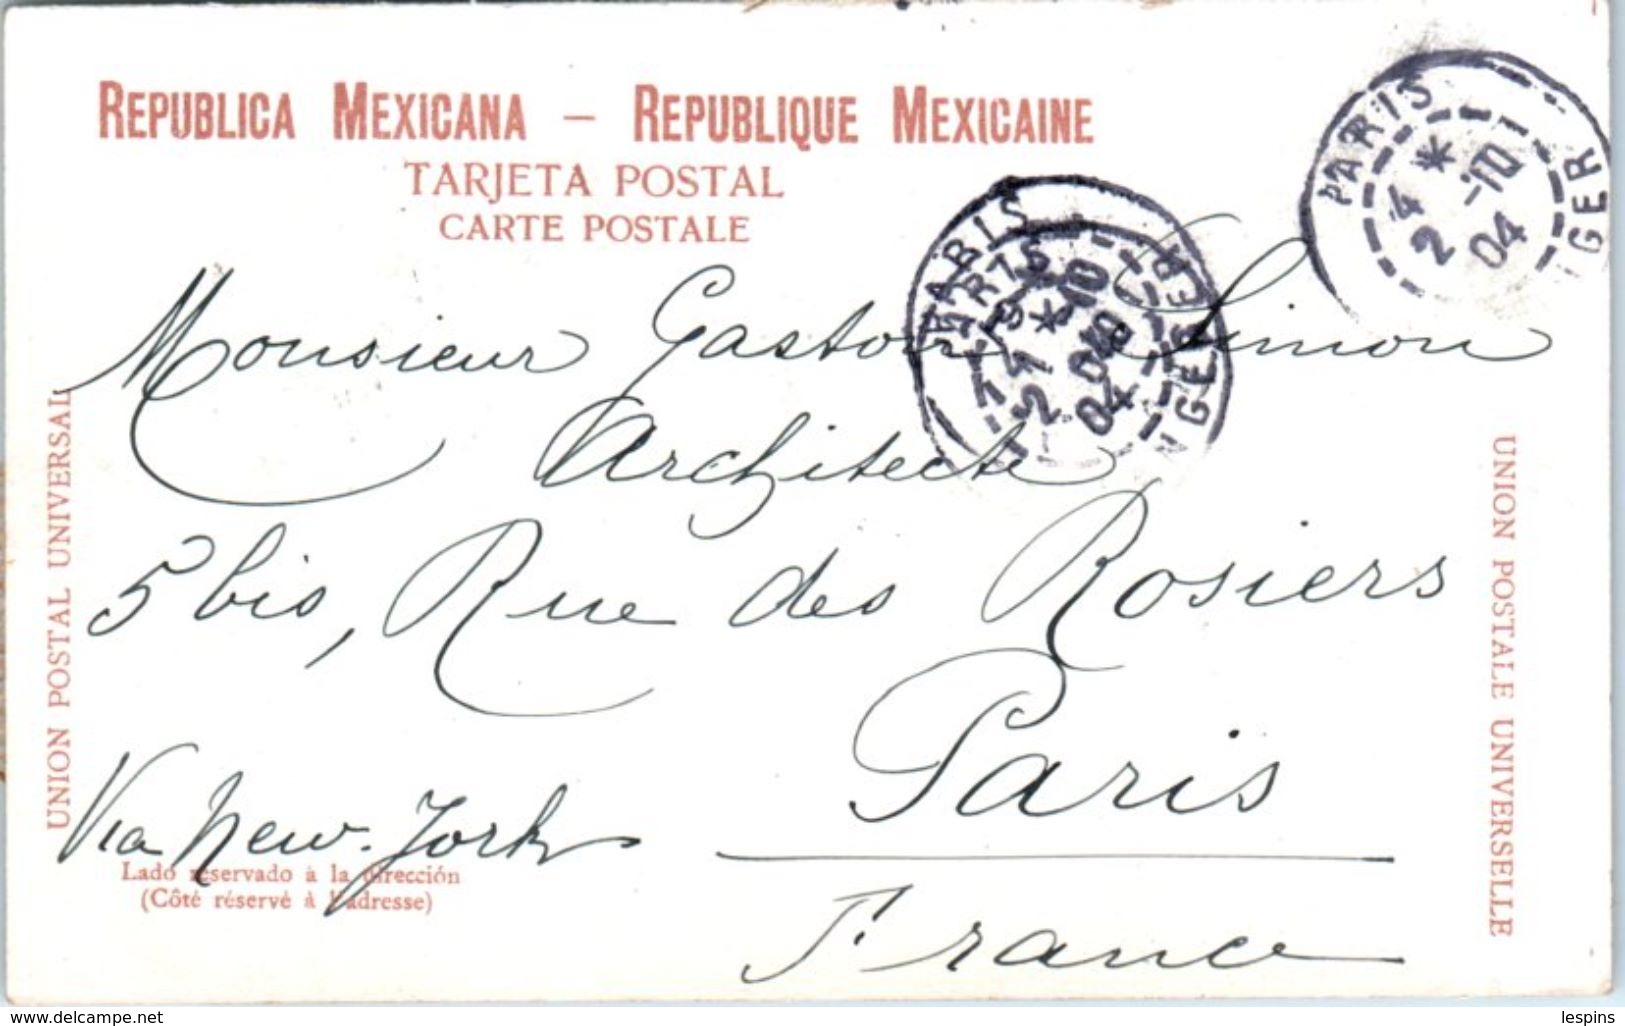 REPUBLICA MEXICANA – REPUBLIQUE MEXICAINE
TARJETA POSTAL
CARTE POSTALE
PARIS
4 *
2 -10
04
GER
PARIS
04
Monsieur Gaston Simon
Architecte
5 bis, Rue des Rosiers
Paris
France
Via New-York
UNION POSTAL UNIVERSAL
UNION POSTALE UNIVERSELLE
Lado reservado à la dirección
(Côté réservé à l'adresse)
www.delcampe.net
lespins